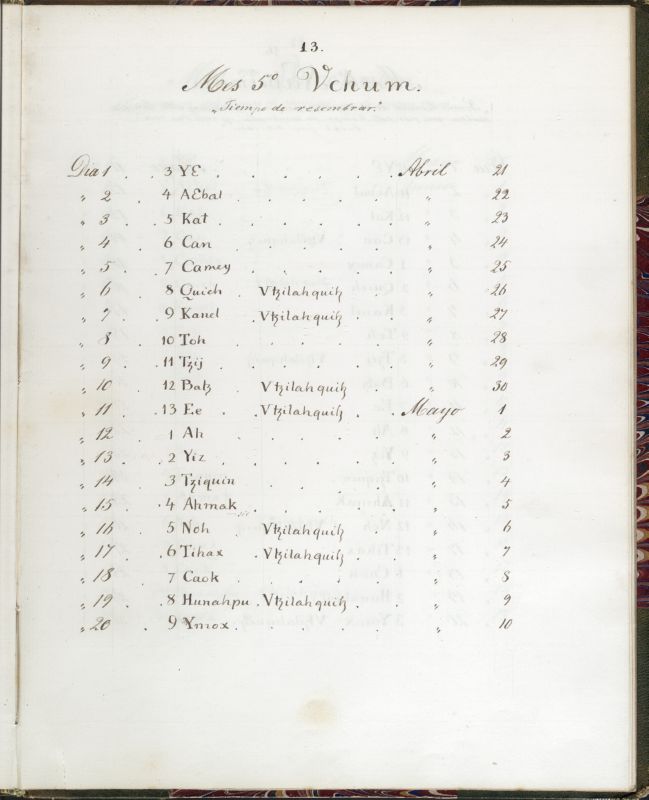 13.
Mes 5º Vchum.
"Tiempo de resembrar."
Dia 1 . . 3 YƐ . . . . . . Abril 21
" 2 . 4 AƐbal . . . . . " 22
" 3 . . 5 Kat . . . . . . " 23
" 4 . . 6 Can . . . . . . " 24
" 5 . . 7 Camey . . . . . " 25
" 6 . . 8 Quieh . Vtzilahquitz . . " 26
" 7 . . 9 Kanel . Vtzilahquitz . . " 27
" 8 . . 10 Toh . . . . . . " 28
" 9 . . 11 Tzij . . . . . . " 29
" 10 . . 12 Batz . Vtzilahquitz . . " 30
" 11 . . 13 Ee . . Vtzilahquitz . . Mayo 1
" 12 . . 1 Ah . . . . . . " 2
" 13 . . 2 Yiz . . . . . . " 3
" 14 . . 3 Tziquin . . . . . " 4
" 15 . . 4 Ahmak . . . . . " 5
" 16 . . 5 Noh . Vtzilahquitz . . " 6
" 17 . . 6 Tihax . Vtzilahquitz . . " 7
" 18 . . 7 Caok . . . . . " 8
" 19 . . 8 Hunahpu . Vtzilahquitz . . " 9
" 20 . . 9 Ymox . . . . . . " 10